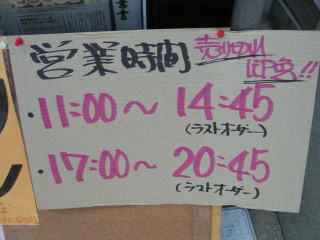 営業時間
売り切れ
11:00〜14:45
(ラストオーダー)
17:00〜20:45
(ラストオーダー)